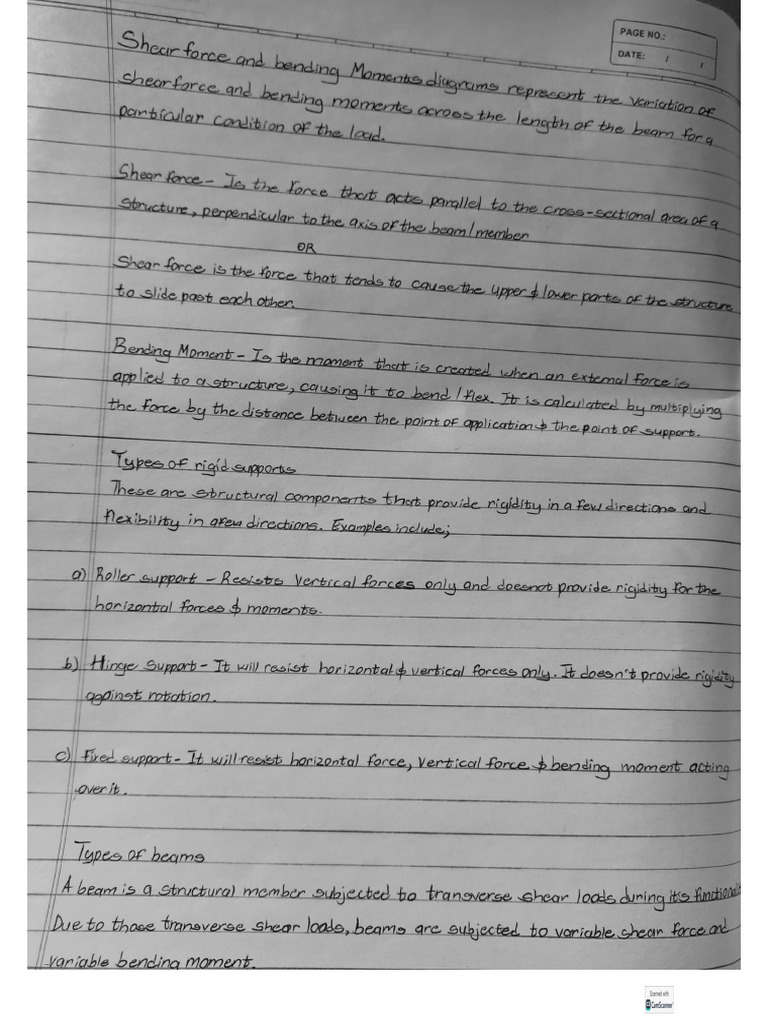 PAGE NO.:
DATE: / /
Shear force and bending Moments diagrams represent the variation of
shear force and bending moments across the length of the beam for a
particular condition of the load.
Shear force - Is the force that acts parallel to the cross-sectional area of a
structure, perpendicular to the axis of the beam/member
OR
Shear force is the force that tends to cause the upper & lower parts of the structure
to slide past each other.
Bending Moment - Is the moment that is created when an external force is
applied to a structure, causing it to bend / flex. It is calculated by multiplying
the force by the distance between the point of application & the point of support.
Types of rigid supports
These are structural components that provide rigidity in a few directions and
flexibility in a few directions. Examples include;
a) Roller support - Resists vertical forces only and doesnot provide rigidity for the
horizontal forces & moments.
b) Hinge support - It will resist horizontal & vertical forces only. It doesn't provide rigidity
against rotation.
c) Fixed support - It will resist horizontal force, vertical force & bending moment acting
over it.
Types of beams
A beam is a structural member subjected to transverse shear loads during it's
Due to those transverse shear loads, beams are subjected to variable shear force and
variable bending moment.
Scanned with
CS CamScanner